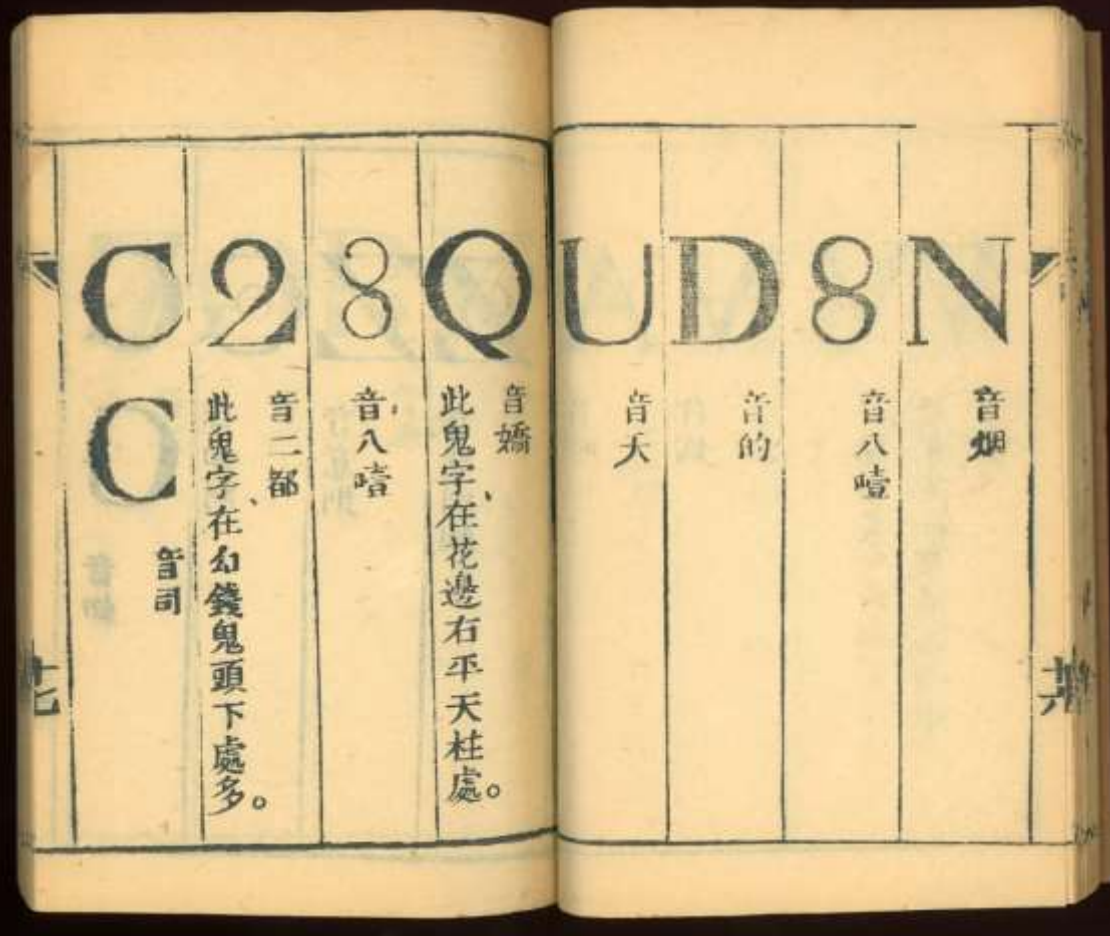 N
音烟
8
音八噎
D
音的
U
音夭
廿六
Q
音嬌
此鬼字、在花邊右平天柱處。
8
音八噎
2
音二都
此鬼字、在幻錢鬼頭下處多。
C
C
音司
廿七